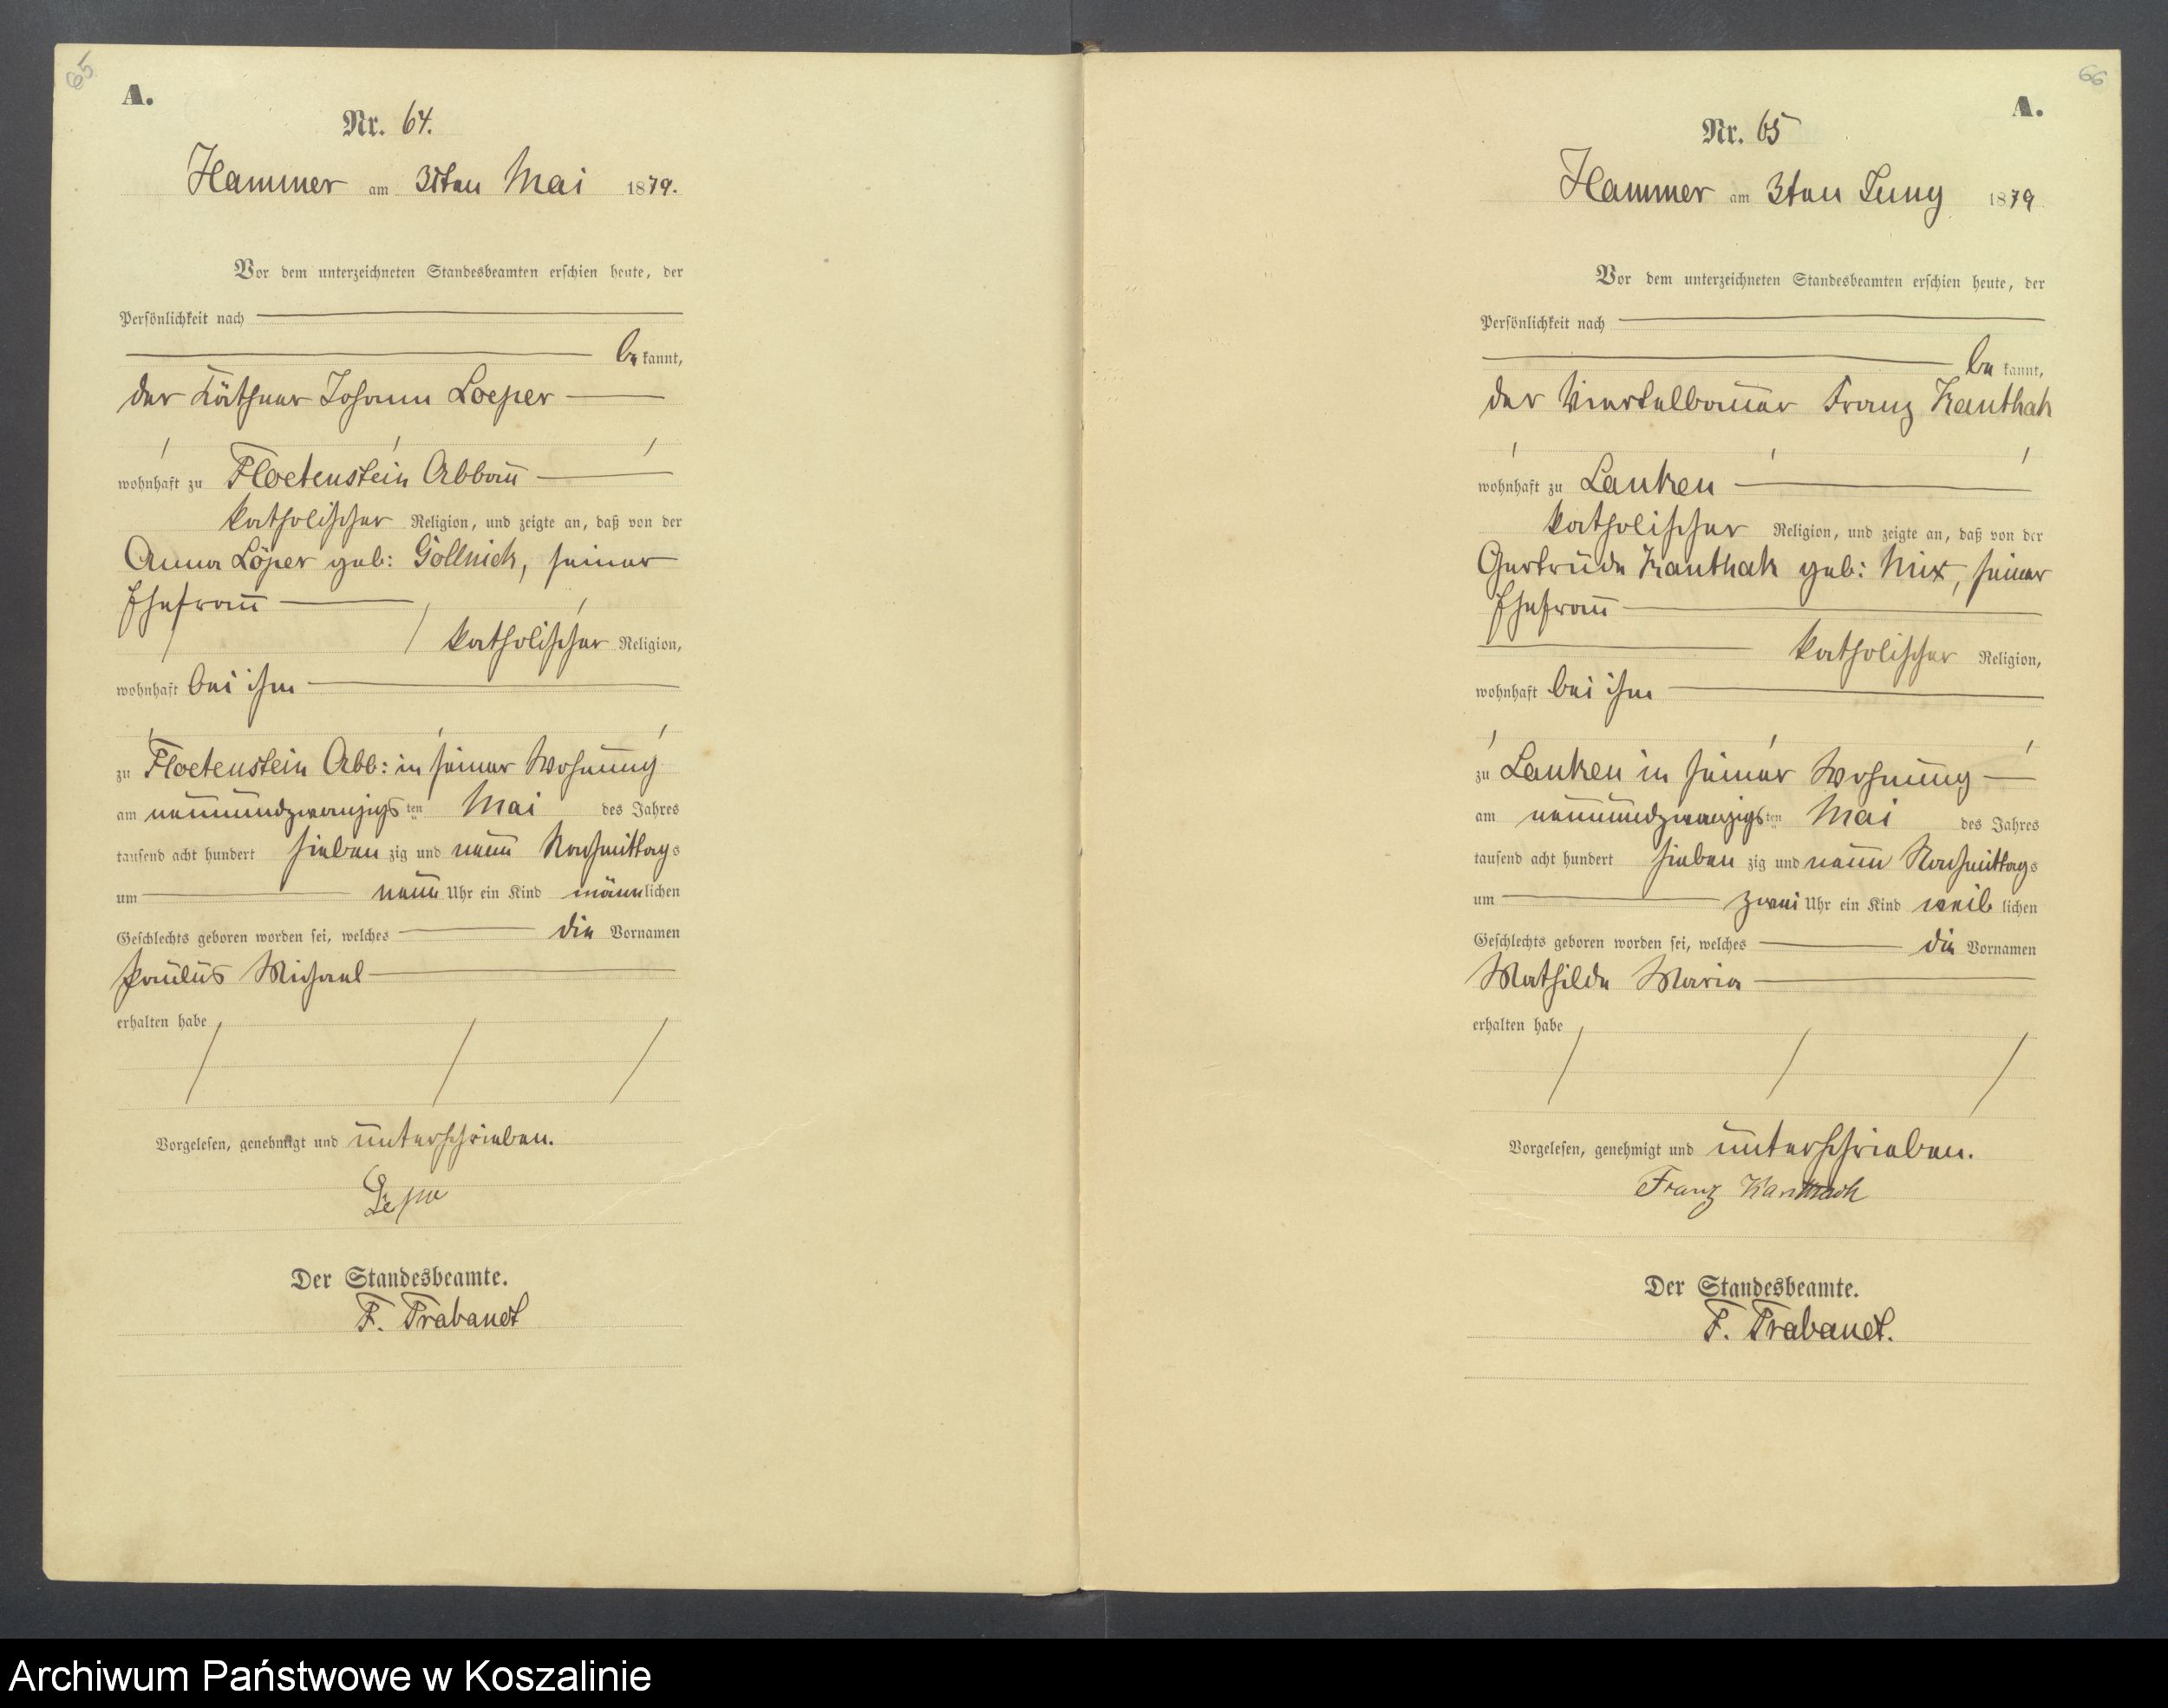 65
A.
Nr. 64.
Hammer am 31ten Mai 1879.
Vor dem unterzeichneten Standesbeamten erschien heute, der
Persönlichkeit nach
bekannt,
der Käthner Johann Loeper
wohnhaft zu Floetenstein Abbau
katholischer Religion, und zeigte an, daß von der
Anna Löper geb: Gollnick, seiner
Ehefrau
katholischer Religion,
wohnhaft bei ihm
zu Floetenstein Abb: in seiner Wohnung
am neunundzwanzigsten Mai des Jahres
tausend acht hundert siebenzig und neun Nachmittags
um neun Uhr ein Kind männlichen
Geschlechts geboren worden sei, welches die Vornamen
Paulus Michael
erhalten habe
Vorgelesen, genehmigt und unterschrieben.
Der Standesbeamte.
F. Trabandt
66
A.
Nr. 65
Hammer am 3ten Juny 1879
Vor dem unterzeichneten Standesbeamten erschien heute, der
Persönlichkeit nach
bekannt,
der Viertelbauer Franz Kanthak
wohnhaft zu Lanken
katholischer Religion, und zeigte an, daß von der
Gertrude Kanthak geb: Mix, seiner
Ehefrau
katholischer Religion,
wohnhaft bei ihm
zu Lanken in seiner Wohnung
am neunundzwanzigsten Mai des Jahres
tausend acht hundert siebenzig und neun Nachmittags
um zwei Uhr ein Kind weiblichen
Geschlechts geboren worden sei, welches die Vornamen
Mathilde Maria
erhalten habe
Vorgelesen, genehmigt und unterschrieben.
Franz Kanthack
Der Standesbeamte.
F. Trabandt.
Archiwum Państwowe w Koszalinie